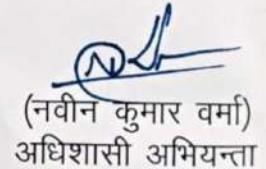 (नवीन कुमार वर्मा)
अधिशासी अभियन्ता